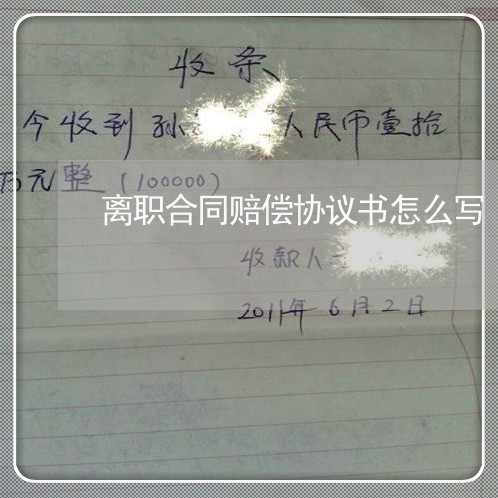 收条
今收到孙 人民币壹拾
万元整(100000)
离职合同赔偿协议书怎么写
收款人
2011年6月2日